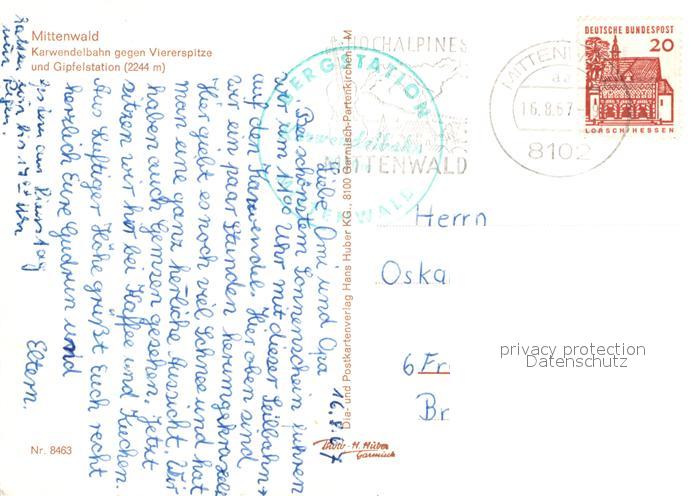 Mittenwald
Karwendelbahn gegen Viererspitze
und Gipfelstation (2244 m)
HOCHALPINES
MITTENWALD
BERGSTATION
Karwendelbahn
MITTENWALD
MITTENWALD
16.8.67
8102
DEUTSCHE BUNDESPOST
20
LORSCH/HESSEN
16.8.67
Liebe Omi und Opa
Bei schönstem Sonnenschein fuhren
wir um 11°° Uhr mit dieser Seilbahn
auf den Karwendel. Hier oben sind
wir ein paar Stunden herumgekraxelt
Hier giebt es noch viel Schnee und hat
man eine ganz herrliche Aussicht. Wir
haben auch Gemsen gesehen. Jetzt
sitzen wir hir bei Kaffee und Kuchen.
Aus luftiger Höhe grüßt Euch recht
herzlich Eure Gudrun und
Eltern.
Gestern am Dienstag
hatten bis 17°° Uhr
nur Regen.
Dia- und Postkartenverlag Hans Huber KG., 8100 Garmisch-Partenkirchen M
Herrn
Oska
6 Fr
Br
privacy protection
Datenschutz
Nr. 8463
Photo-H. Huber
Garmisch